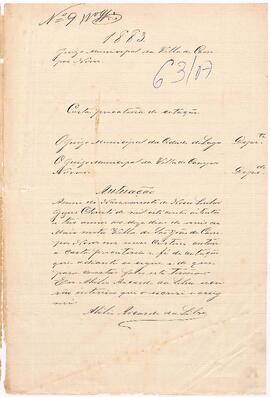 Nº 9
1883
Juizo Municipal da Villa de Cam
pos Novos
63/07
Carta precatoria de citação
O Juizo Municipal da Cidade de Lages
Depte
O Juizo Municipal da Villa de Campos
Novos
Depdo
Autuação
Anno do Nascimento de Nosso Senhor
Jesus Christo de mil oito centos oitenta
e tres annos aos dias do mez de
Maio nesta Villa de São João de Cam
pos Novos em meu Cartorio autúo
a carta precatoria e fé de citação
que adiante se segue e de que
para constar faço este termo
Eu da Silva
escrivão interino que o escrevi e assig
nei
da Silva